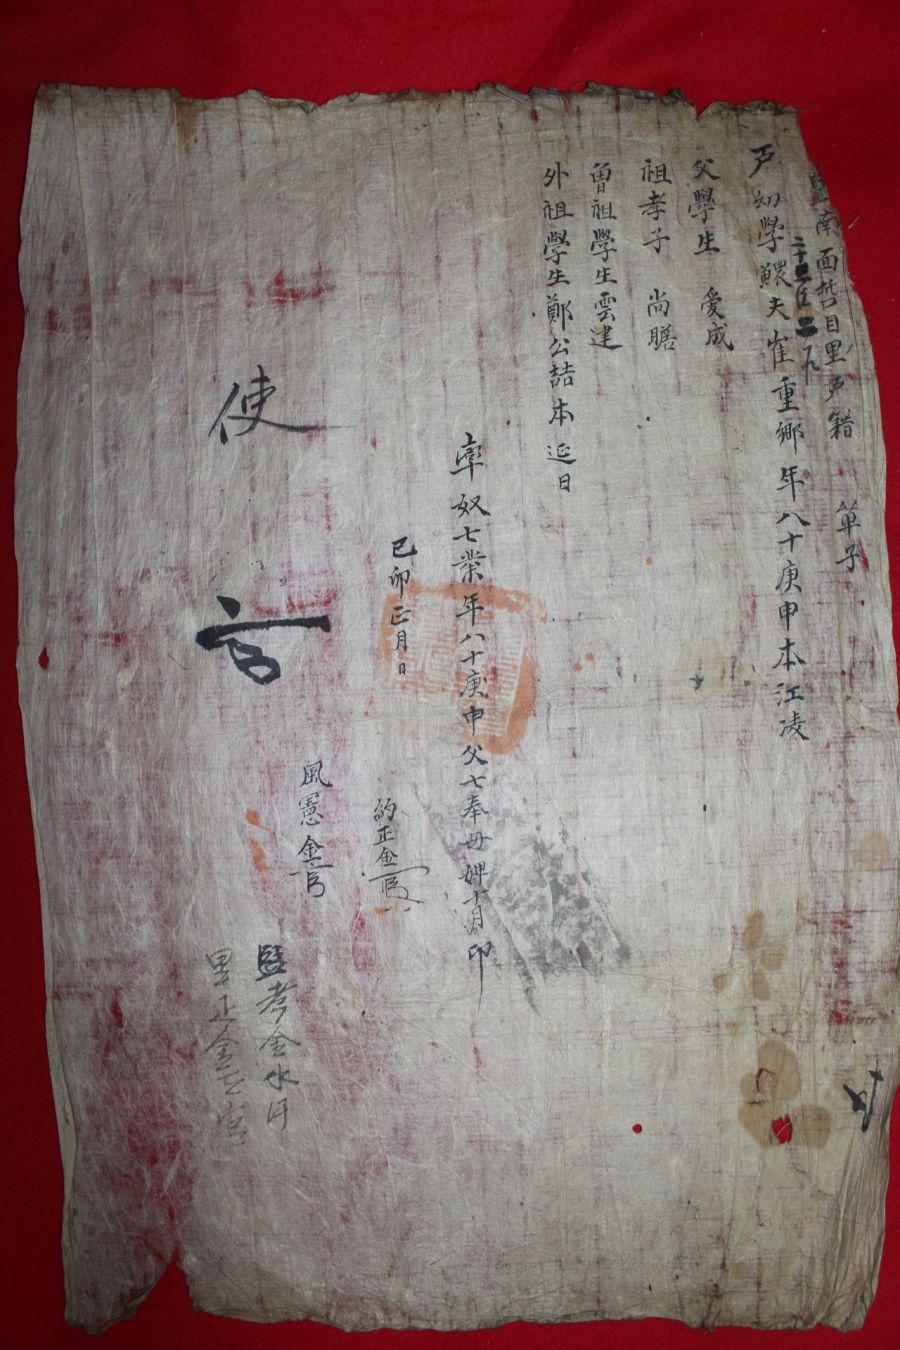 南面哲目里戶籍 單子
戶幼學鰥夫崔重鄉年八十庚申本江凌
父學生 愛成
祖孝子 尚膳
曾祖學生雲建
外祖學生鄭公喆本延日
率奴七業年八十庚申父七奉母婢十月印
己卯正月日
約正金
風憲金
使
監考金水
里正金